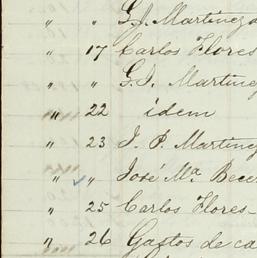 " " G. J. Martinez
" 17 Carlos Flores
" " G. J. Martinez
" 22 idem
" 23 J. P. Martinez
" " José Mª
" 25 Carlos Flores
" 26 Gastos de